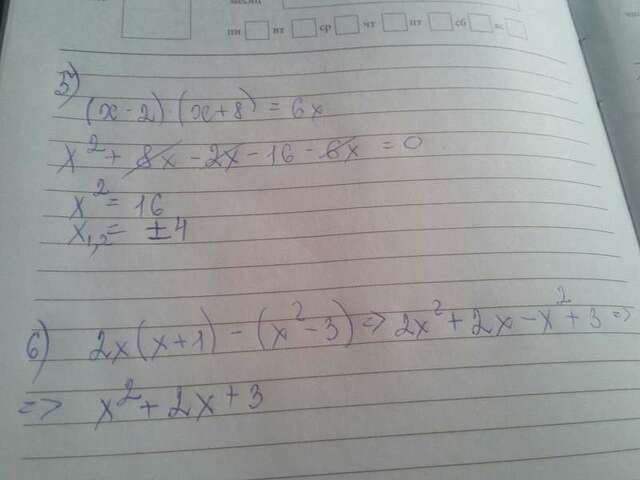 месяц
пн вт ср чт пт сб вс
5)
(x-2)·(x+8) = 6x
x² + 8x - 2x - 16 - 6x = 0
x² = 16
x₁,₂ = ±4
6) 2x(x+1) - (x²-3) => 2x² + 2x - x² + 3 =>
=> x² + 2x + 3